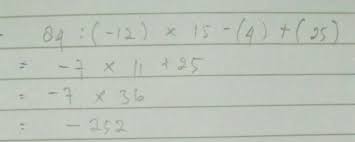 84 : (-12) × 15 - (4) + (25)
= -7 × 11 + 25
= -7 × 36
= -252